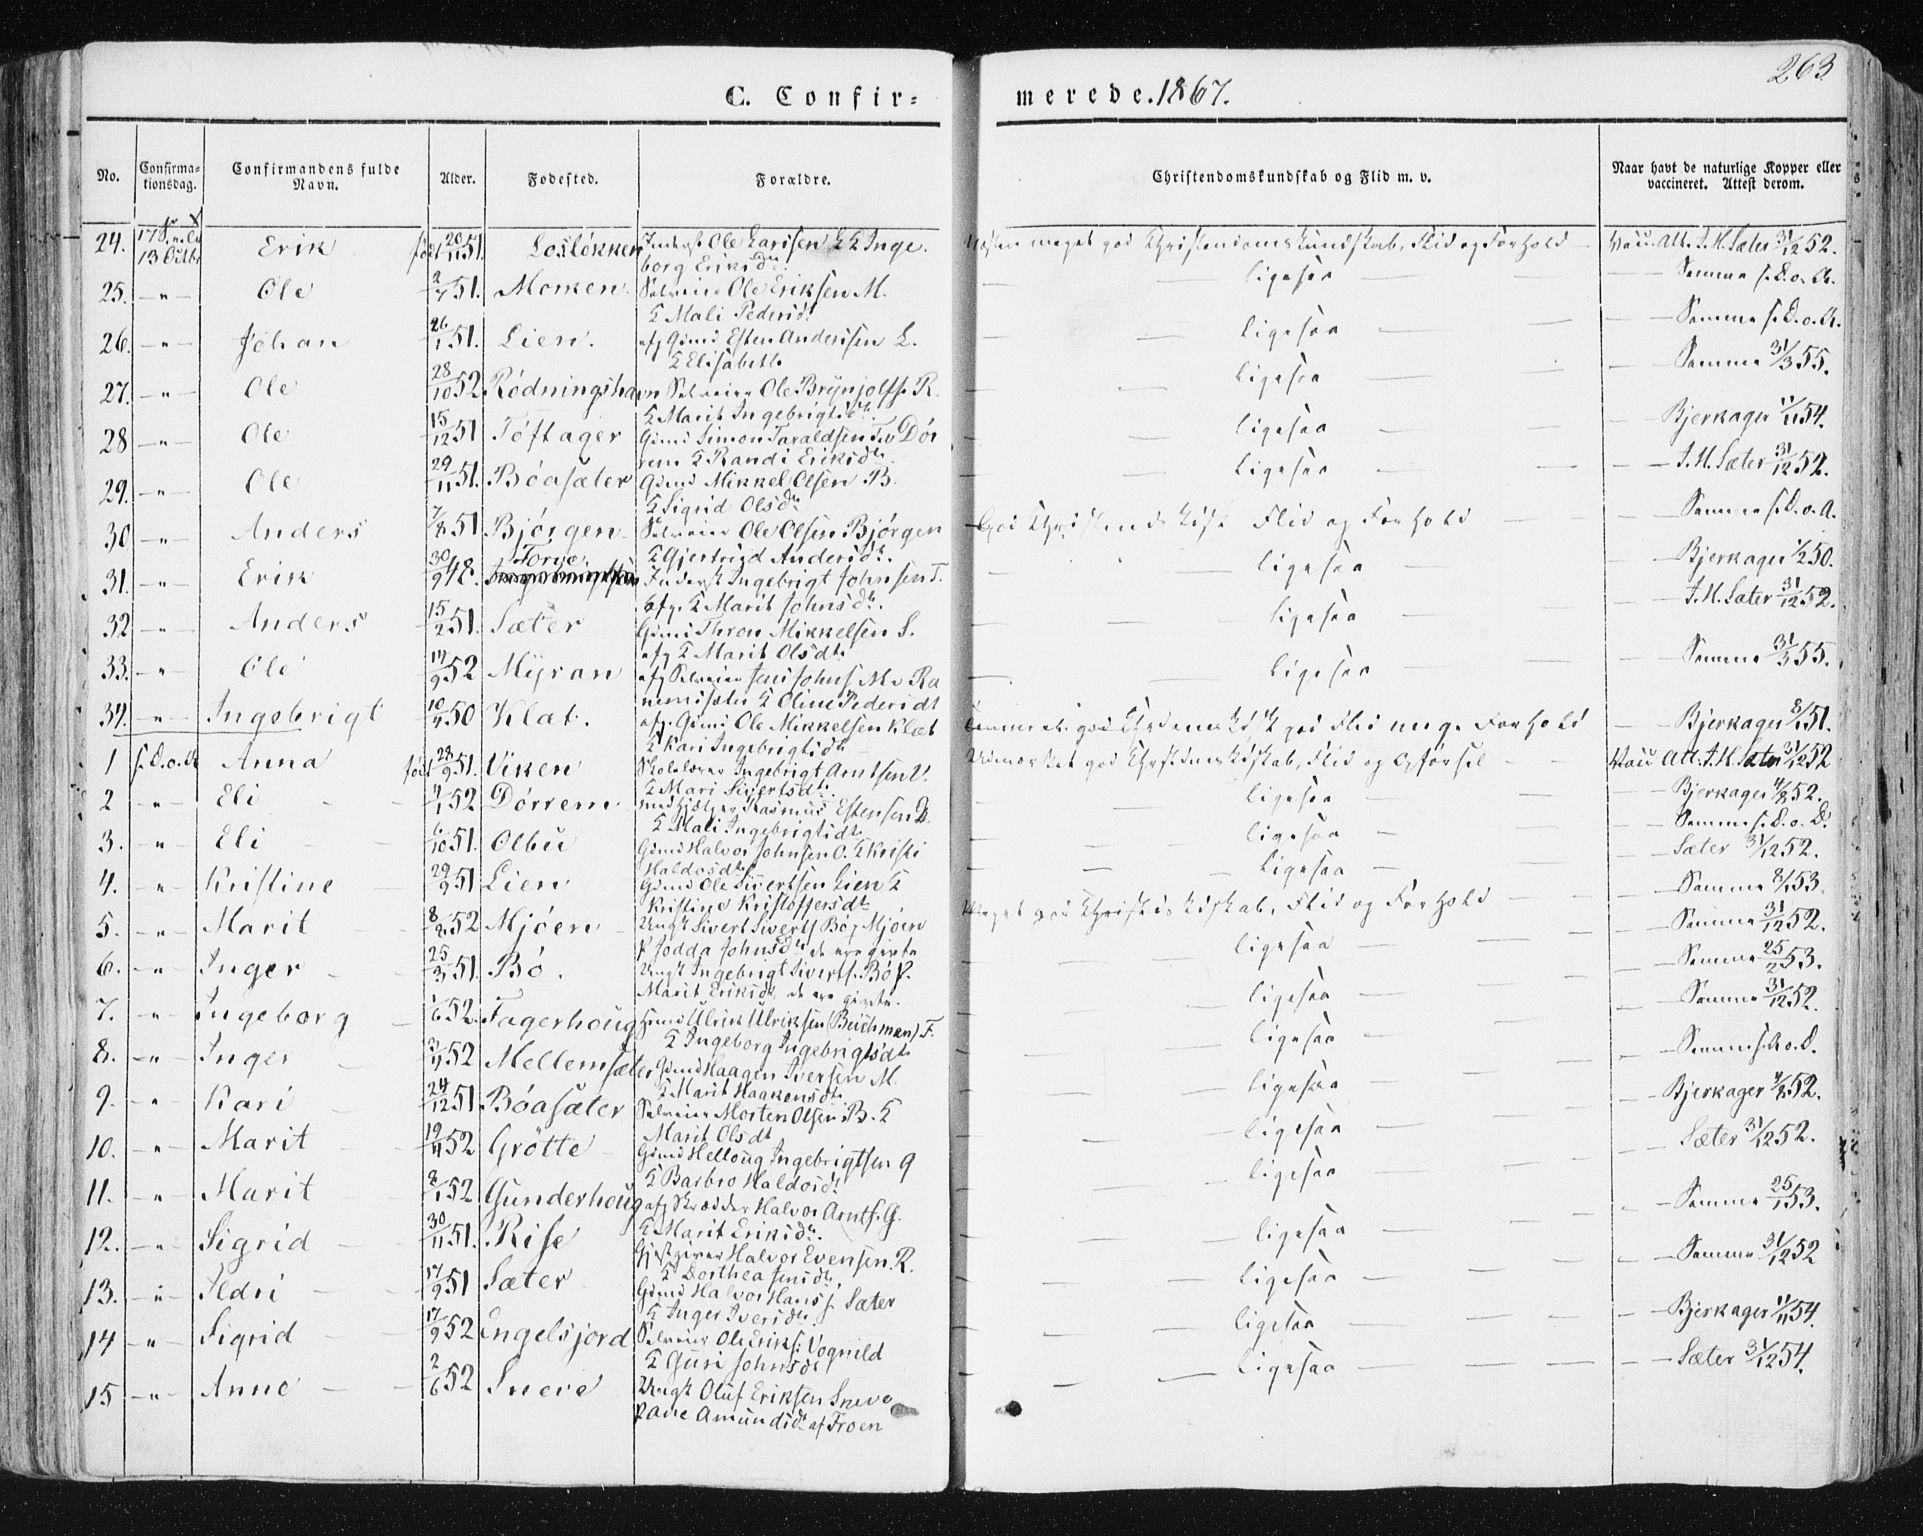 263
C. Confirmerede. 1867.
No. Confirmationsdag. Confirmandens fulde Navn. Alder. Fodested. Forældre. Christendomskundskab og Flid m. v. Naar havt de naturlige Kopper eller vaccineret. Attest derom.
24. 13 Octbr Erik født 20/11 51. Losløkken Inderst Ole Larssen L & Inge-
borg Eriksdtr. Næsten meget god Christendomskundskab, Flid og Forhold Vacc. Att. J. H. Sæter 31/12 52.
25. -"- Ole 2/7 51. Moxen Selveier Ole Eriksen M.
& Mali Pedersdt ligesaa Samme s. D. o. A.
26. -"- Johan 26/1 51. Lien. afg Gmd Esten Anderssen L.
& Elisabeth ligesaa Samme s. D. o. A.
27. -"- Ole 28/10 52 Rødningshavn Selveier Ole Brynjolfs. R.
& Marit Ingebrigtsdt. ligesaa Samme 31/3 55.
28 -"- Ole 15/12 51 Toftager Gmd Simon Taraldsen T. v Dør
rem & Randi Eriksdt. ligesaa Bjerkager 11/11 54.
29. -"- Ole 29/11 51. Bøasæter Gmd Mikkel Olsen B.
& Sigrid Olsdtr ligesaa J. H. Sæter 31/12 52.
30 -"- Anders 7/8 51 Bjørgen Selveier Ole Olsen Bjørgen
& Gjertrud Andersdt. God Flid og Forhold Samme s. D. o. A.
31. -"- Erik 30/9 48. Torve. Inderst Ingebrigt Johnsen T.
afg. & Marit Johnsdt. ligesaa Bjerkager 1/2 50.
32 -"- Anders 15/2 51. Sæter Gmd Thron Mikkelsen S.
afg & Marit Olsdt. ligesaa J. H. Sæter 31/12 52.
33. -"- Ole 14/9 52 Myran afg Selveier Jens Johns M v Ra
& Oline Pedersdt ligesaa Samme 31/3 55.
34. -"- Ingebrigt 10/4 50 Klæt. afg. Gmd Ole Mikkelsen Klæt
& Kari Ingebrigtsdt god Flid Forhold Bjerkager 8/1 51.
1 s. D. o. A Anna født 28/9 51. Viken Skolelærer Ingebrigt Arntsen V.
& Mari Sivertsdt. Udmærket god Flid og Opførsel Vacc Att. J. H. Sæter 31/12 52
2 " Eli 4/1 52 Dørrem Rasmus Estensen D.
& Mali Ingebrigtsdt. ligesaa Bjerkager 4/8 52.
3. " Eli 6/10 51. Olbu Gmd Halvor Johnsen O. & Kristi
Haldosdt ligesaa Samme s. D. o. D.
4. -"- Kristine 29/9 51 Lien Gmd Ole Sivertsen Lien &
Kristine Kristoffersdt ligesaa Sæter 31/12 52.
5. -"- Marit 8/8 52 Mjøen Ungk Sivert Siverts Bø, Mjøen
P Jodda Johnsdt. de ere givte Meget god Flid og Forhold Samme 8/1 53
6. -"- Inger 25/3 51. Bø. Ungk Ingebrigt Siverts. Bø P.
Marit Eriksdt de ere givte. ligesaa Samme 31/12 52.
7. -"- Ingeborg 1/6 52. Fagerhoug Gmd Ulrik Ulriksen (Beichman) F.
& Ingeborg Ingebrigtsdt ligesaa Samme 25/2 53.
8. -"- Inger 3/4 52 Mellemsæter Gmd Haagen Iversen M.
& Marit Haakensdt. ligesaa Samme 31/12 52.
9. " Kari 24/12 51 Bøasæter Selveier Morten Olsen B. &
Marit Olsdt ligesaa Samme s. A o. D.
10. -"- Marit 19/4 52 Grötte Gmd Helloug Ingebrigtsen G
& Barbro Haldosdt ligesaa Bjerkager 4/8 52.
11. " Marit 8/1 52 Gunderhoug afg Skrædder Halvor Arnts. G.
& Marit Eriksdt. ligesaa Sæter 31/12 52.
12. -"- Sigrid 30/11 51. Rise Gjestgiver Halvor Evensen R.
& Dorthea Jensdt. ligesaa Samme 25/1 53.
13. -"- Ildri 17/9 51 Sæter Gmd Halvor Hanss. Sæter
& Inger Iversdt. ligesaa Samme 31/12 52
14 " Sigrid 17/9 52 Engelsjord Selveier Ole Eriks: Vognild
& Guri Johnsdt ligesaa Bjerkager 11/11 54.
15 -"- Anne 2/6 52 Sneve Ungk Oluf Eriksen Sneve
P ane Amundsdt. af Froen ligesaa Sæter 31/12 54.